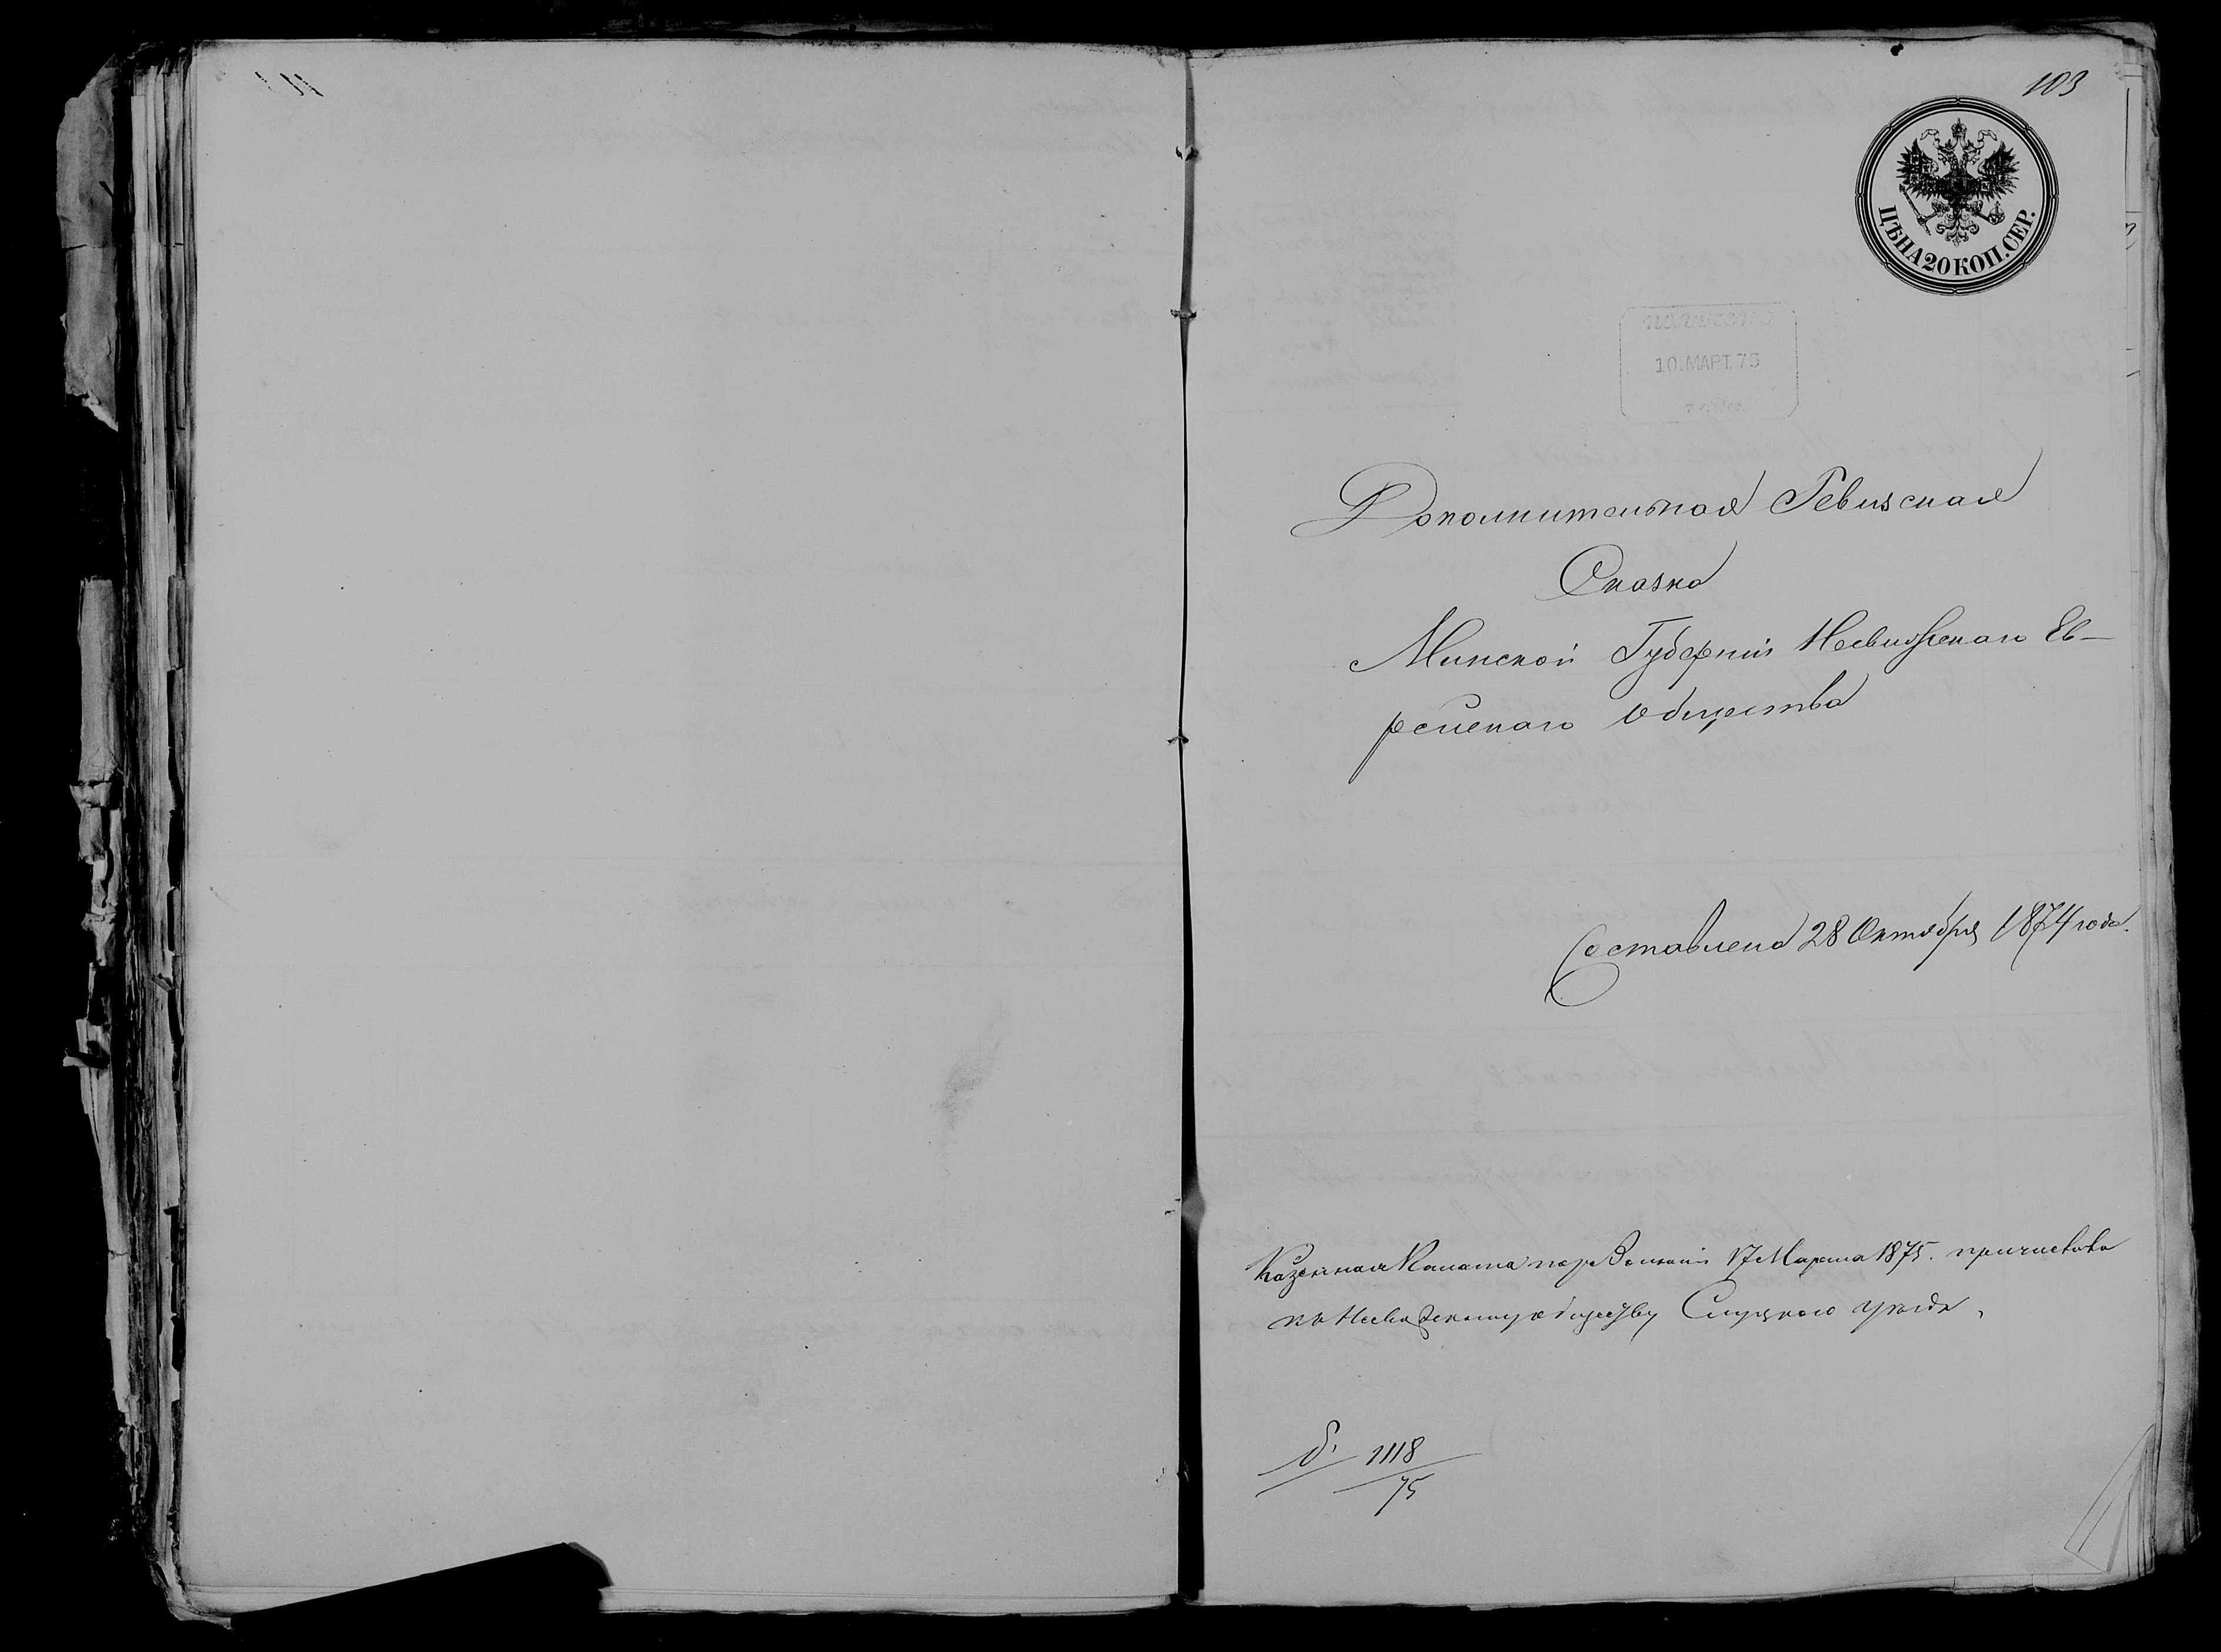 103
ЦѢНА 20 КОП. СЕР.
получено
10.МАРТ.75
Дополнительная Ревизская
Сказка
Минской Губерніи Несвижскаго Ев-
рейскаго Общества
Составлена 28 Октября 1874 года.
Казенная Палата 17 Марта 1875. причислила
къ Несвижскому обществу Слуцкаго уѣзда,
1118
75